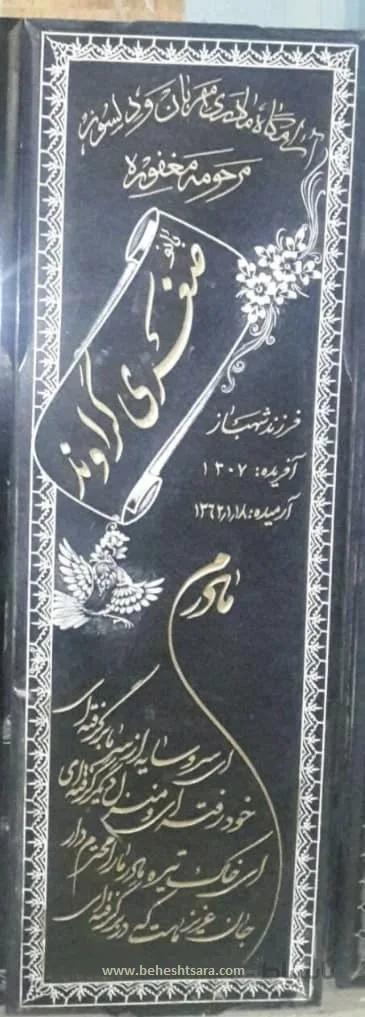 آرامگاه مادری مهربان و دلسوز
مرحومه مغفوره
بانو
صغری گراوند
فرزند شهباز
آفریده: ۱۳۰۷
آرمیده: ۱۳۶۲٫۱٫۱۸
مادرم
ای سرو سایه از سر ما برگرفته‌ای
خود رفته‌ای و منزل دیگر گرفته‌ای
ای خاک تیره مادر ما را محترم دار
جان عزیز ماست که در بر گرفته‌ای
www.beheshtsara.com